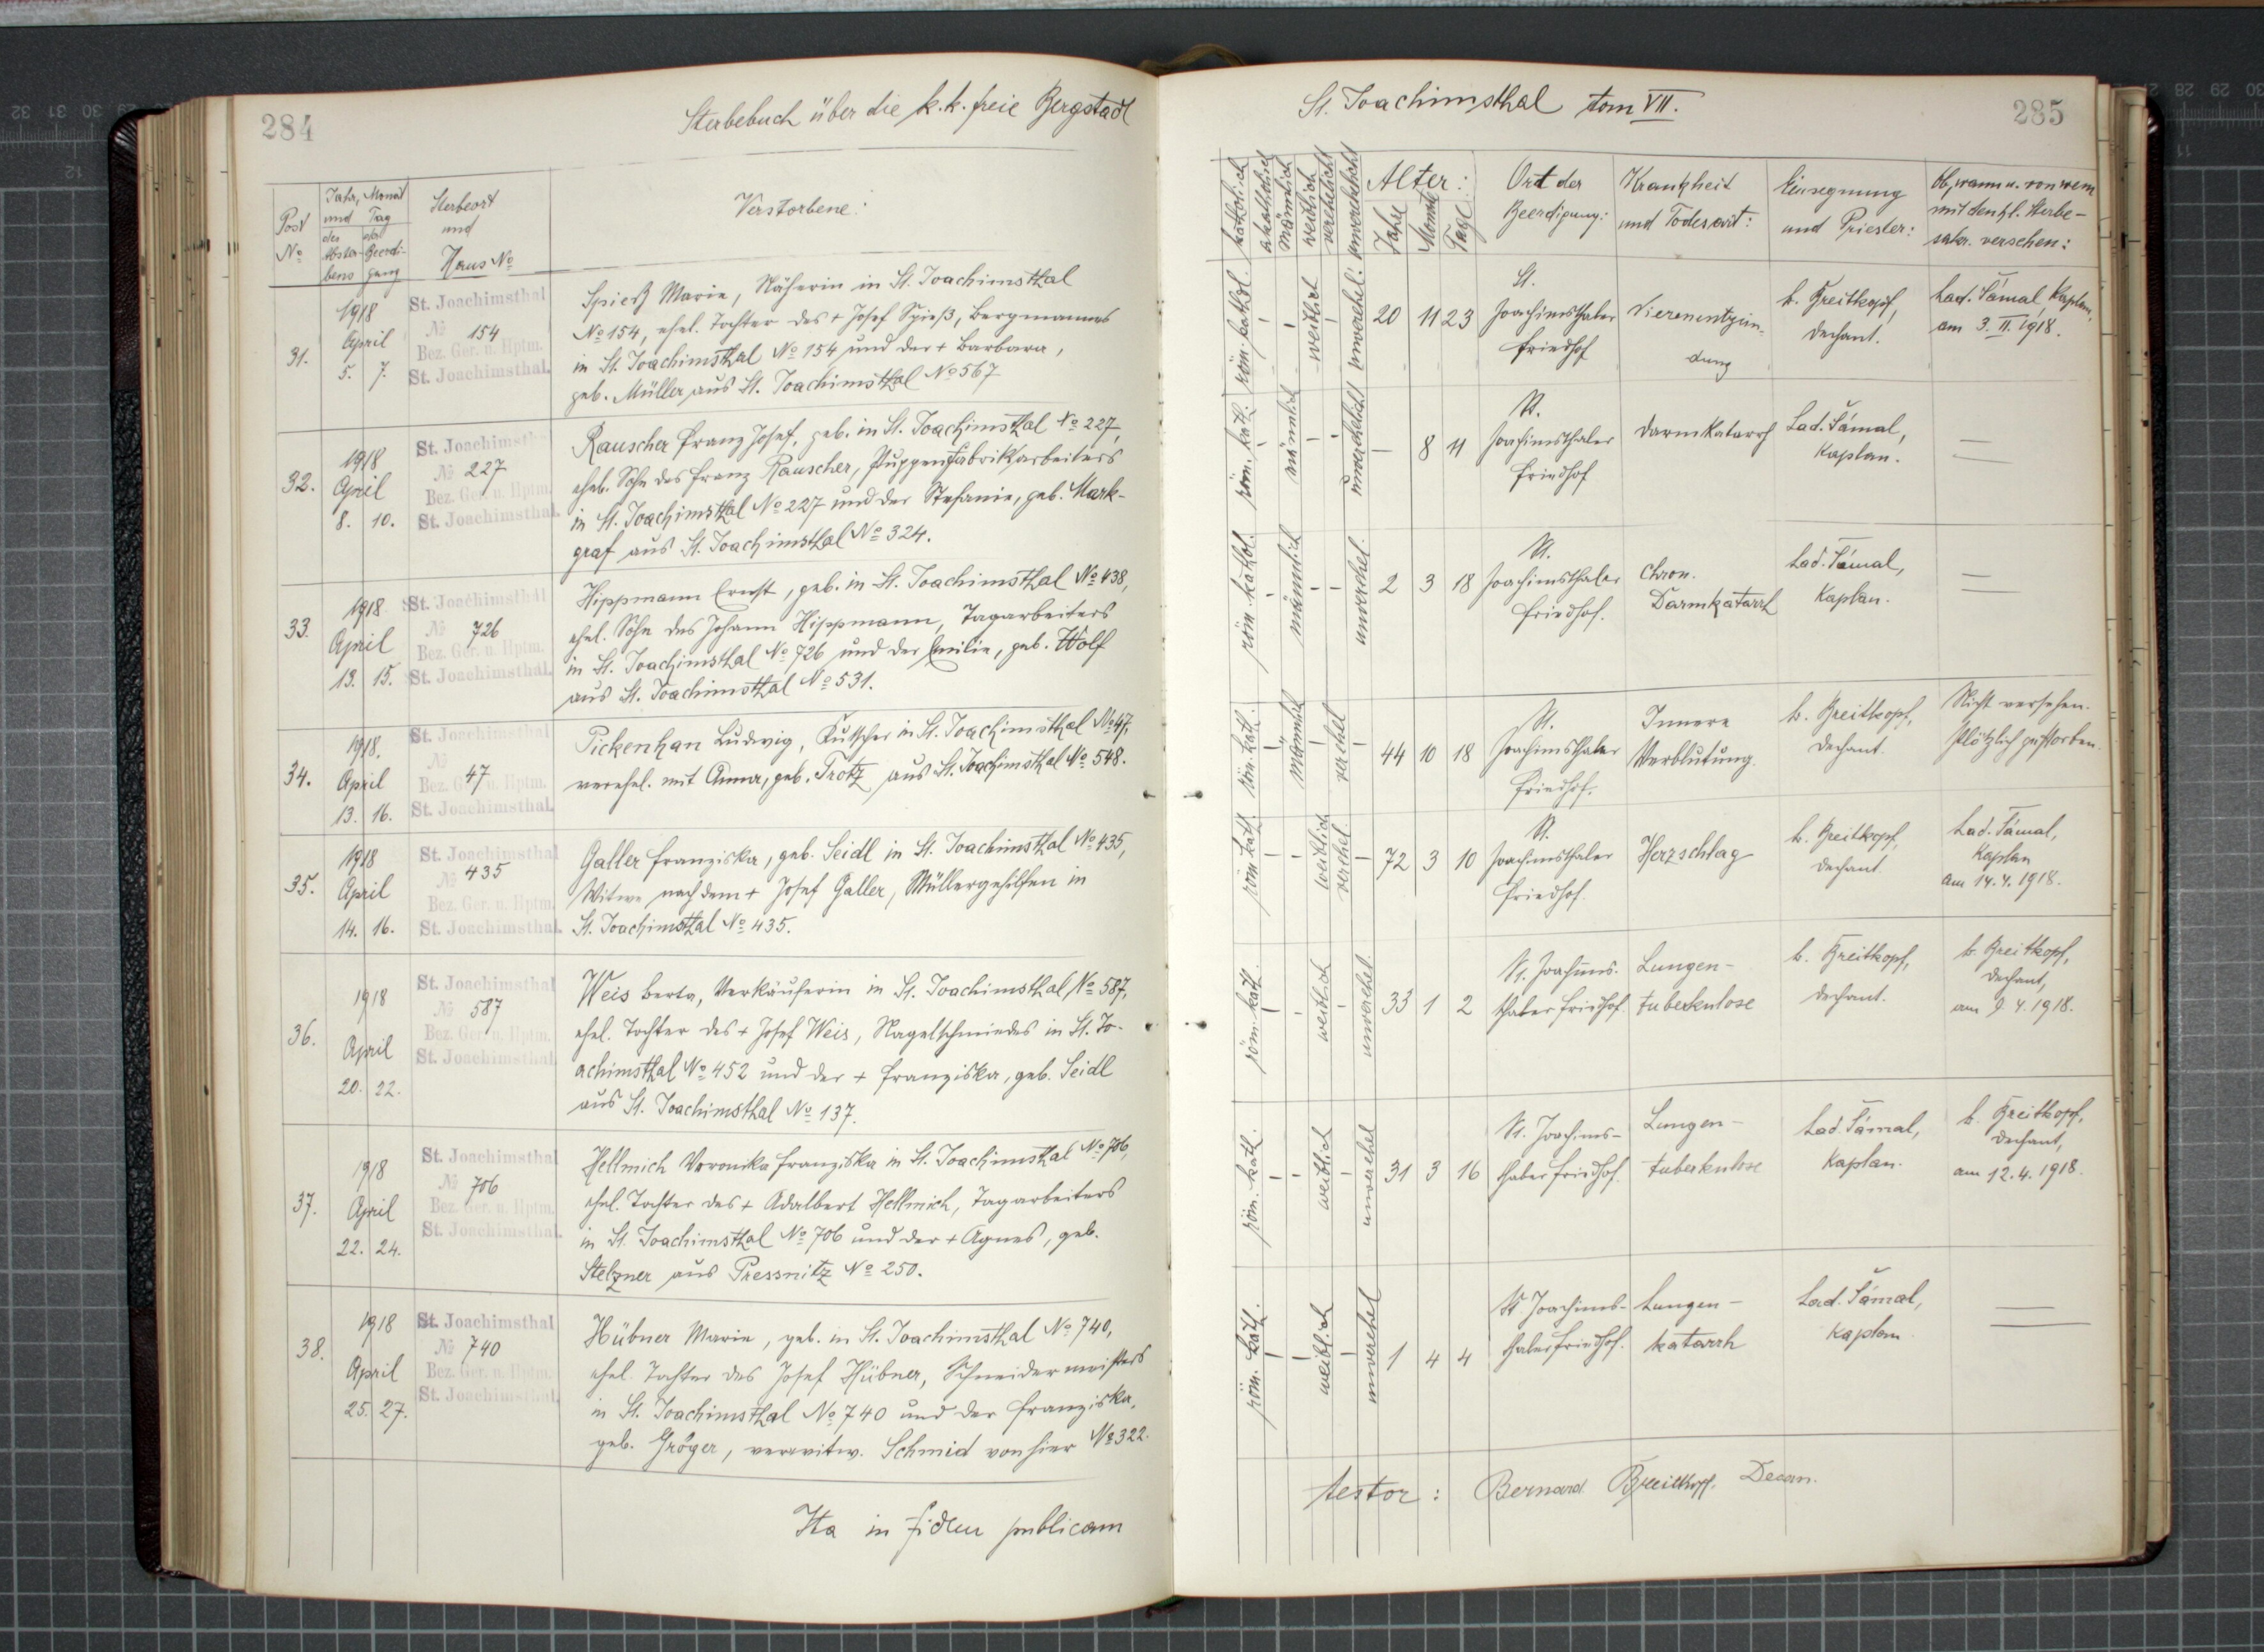 284
Sterbebuch über die k. k. freie Bergstadt
Post
No
Jahr, Monat
und Tag
des
Abster-
bens
der
Beerdi-
gung
Sterbeort
und
Haus No
Verstorbene:
31.
1918
April
5. 7.
St. Joachimsthal
No 154
Bez. Ger. u. Hptm.
St. Joachimsthal.
Spieß Marie, Näherin in St. Joachimsthal
No 154, ehel. Tochter des + Josef Spieß, Bergmannes
in St. Joachimsthal No 154 und der + Barbara,
geb. Müller aus St. Joachimsthal No 567
32.
1918
April
8. 10.
St. Joachimsthal
No 227
Bez. Ger. u. Hptm.
St. Joachimsthal.
Rauscher Franz Josef, geb. in St. Joachimsthal No 227,
eheb. Sohn des Franz Rauscher, Puppenfabrikarbeiters
in St. Joachimsthal No 227 und der Stefanie, geb. Mark-
graf aus St. Joachimsthal No 324.
33.
1918
April
13. 15.
St. Joachimsthal
No 726
Bez. Ger. u. Hptm.
St. Joachimsthal.
Hippmann Ernst, geb. in St. Joachimsthal No 438,
ehel. Sohn des Johann Hippmann, Tagarbeiters
in St. Joachimsthal No 726 und der Emilie, geb. Wolf
aus St. Joachimsthal No 531.
34.
1918.
April
13. 16.
St. Joachimsthal
No 47
Bez. Ger. u. Hptm.
St. Joachimsthal.
Pickenhan Ludwig, Kutscher in St. Joachimsthal No 47,
verehel. mit Anna, geb. Trotz aus St. Joachimsthal No 548.
35.
1918
April
14. 16.
St. Joachimsthal
No 435
Bez. Ger. u. Hptm.
St. Joachimsthal.
Galler Franziska, geb. Seidl in St. Joachimsthal No 435,
Witwe nach dem + Josef Galler, Müllergehilfen in
St. Joachimsthal No 435.
36.
1918
April
20. 22.
St. Joachimsthal
No 587
Bez. Ger. u. Hptm.
St. Joachimsthal
Weis Berta, Verkäuferin in St. Joachimsthal No 587,
ehel. Tochter des + Josef Weis, Nagelschmiedes in St. Jo-
achimsthal No 452 und der + Franziska, geb. Seidl
aus St. Joachimsthal No 137.
37.
1918
April
22. 24.
St. Joachimsthal
No 706
Bez. Ger. u. Hptm.
St. Joachimsthal.
Hellmich Veronika Franziska in St. Joachimsthal No 706,
ehel. Tochter des + Adalbert Hellmich, Tagarbeiters
in St. Joachimsthal No 706 und der + Agnes, geb.
Stelzner aus Pressnitz No 250.
38.
1918
April
25. 27.
St. Joachimsthal
No 740
Bez. Ger. u. Hptm.
St. Joachimsthal
Hübner Marie, geb. in St. Joachimsthal No 740,
ehel. Tochter des Josef Hübner, Schneidermeisters
in St. Joachimsthal No 740 und der Franziska,
geb. Gröger, verwitw. Schmid von hier No 322.
Ita in fidem publicam
St. Joachimsthal tom VII.
285
katholisch
akatholisch
männlich
weiblich
verehelicht
unverehelicht
Alter:
Jahre
Monate
Tage
Ort der
Beerdigung:
Krankheit
und Todesart:
Einsegnung
und Priester:
Ob, wann u. von wem
mit den hl. Sterbe-
sakr. versehen:
röm. kathol.
weiblich
unverehel.
20 11 23
St.
Joachimsthaler
Friedhof
Nierenentzün-
dung
b. Breitkopf,
Dechant.
Lad. Šámal, Kaplan,
am 3. II. 1918.
röm. kath.
männlich
unverehelicht
8 11
St.
Joachimsthaler
Friedhof
Darmkatarrh
Lad. Šámal,
Kaplan.
röm. kathol.
männlich
unverehel.
2 3 18
St.
Joachimsthaler
Friedhof.
Chron.
Darmkatarrh
Lad. Šámal,
Kaplan.
röm. kath.
männlich
verehel
44 10 18
St.
Joachimsthaler
Friedhof.
Innere
Verblutung.
b. Breitkopf,
Dechant.
Nicht versehen.
Plötzlich gestorben.
röm. kath.
weiblich
verehel.
72 3 10
St.
Joachimsthaler
Friedhof.
Herzschlag
b. Breitkopf,
Dechant
Lad. Šámal,
Kaplan
am 14. 4. 1918.
röm. kath.
weiblich
unverehel.
33 1 2
St. Joachims-
thaler Friedhof.
Lungen-
tuberkulose
b. Breitkopf,
Dechant.
b. Breitkopf,
Dechant,
am 9. 4. 1918.
röm. kath.
weiblich
unverehel
31 3 16
St. Joachims-
thaler Friedhof.
Lungen-
tuberkulose
Lad. Šámal,
Kaplan.
b. Breitkopf,
Dechant,
am 12. 4. 1918.
röm. kath.
weiblich
unverehel
1 4 4
St. Joachims-
thaler Friedhof.
Lungen-
katarrh
Lad. Šámal,
Kaplan
testor: Bernard Breitkopf. Decan.